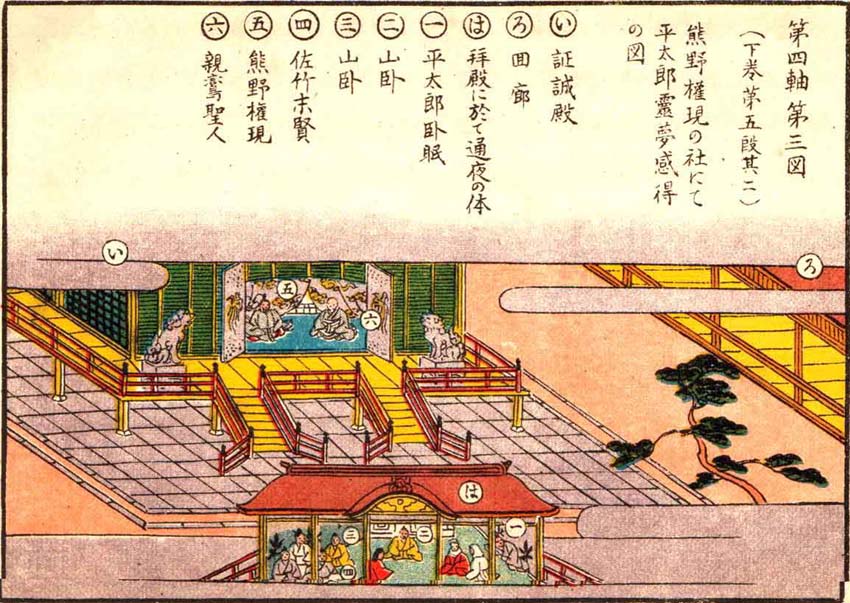 第四軸第三図
(下巻第五段其二)
熊野權現の社にて
平太郎靈夢感得
の図
い 証誠殿
ろ 回廊
は 拜殿に於て通夜の体
一 平太郎臥眠
二 山臥
三 山臥
四 佐竹末賢
五 熊野權現
六 親鸞聖人
い
ろ
五
六
は
一
二
三
四